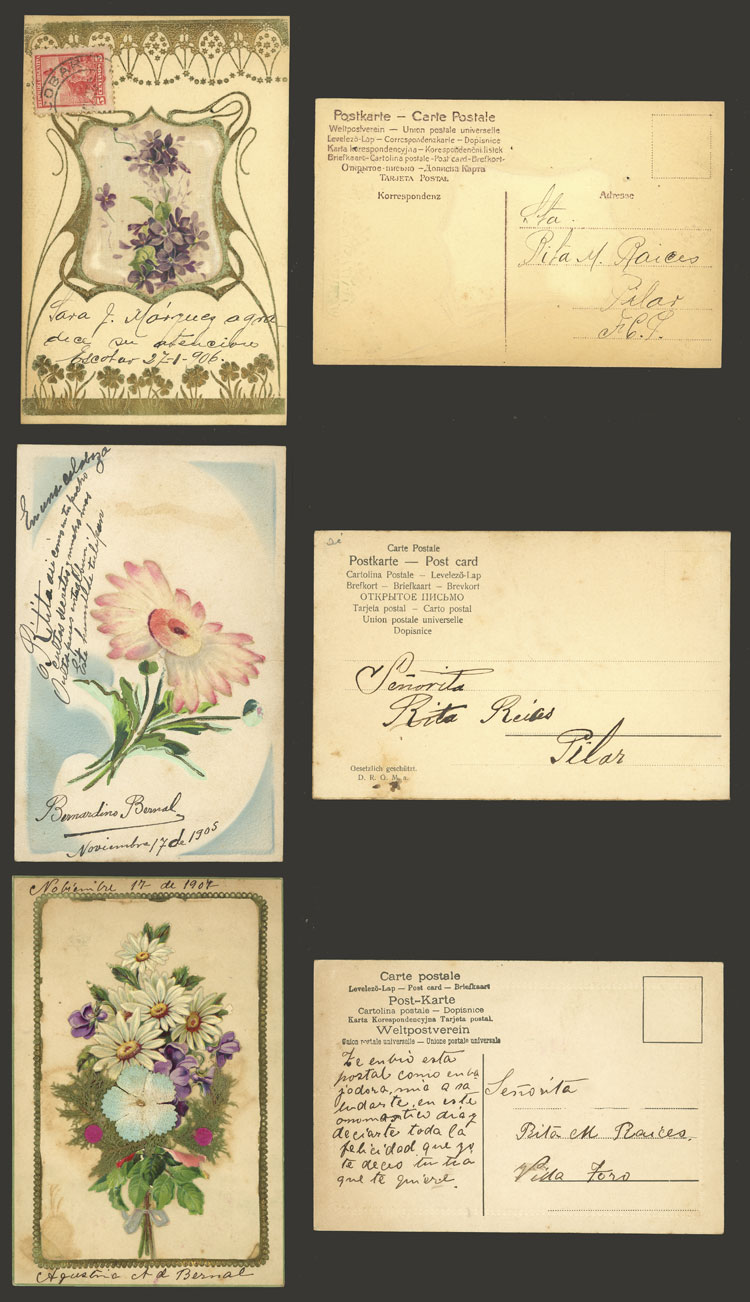 Sara J. Márquez agra-
dece su atencion
Escobar 27-1-906.
Postkarte – Carte Postale
Weltpostverein – Union postale universelle
Levelező-Lap – Correspondenzkarte – Dopisnice
Karta korespondencyjna – Korespondenční lístek
Briefkaart – Cartolina postale – Post card – Brefkort –
Открытое письмо – Дописна Карта
TARJETA POSTAL
Korrespondenz
Adresse
Sta.
Rita M. Raices
Pilar
En una calabaza
Ritita
Este humilde tulipan
Bernardino Bernal
Noviembre 17 de 1905
Carte Postale
Postkarte — Post card
Cartolina Postale – Levelező-Lap
Brefkort – Briefkaart – Brevkort
ОТКРЫТОЕ ПИСЬМО
Tarjeta postal – Carto postal
Union postale universelle
Dopisnice
Señorita
Rita Reices
Pilar
Gesetzlich geschützt.
D. R. G. M. a.
Nobiembre 17 de 1907
Agustina A d Bernal
Carte postale
Levelező-Lap — Post card — Briefkaart
Post-Karte
Cartolina postale — Dopisnice
Karta Korespondencyjna Tarjeta postal.
Weltpostverein
Union postale universelle — Unione postale universale
Te enbio esta
postal como enba
jadora, mia a sa
ludarte, en este
onomastico dia, y
deciarte toda la
felicidad que yo
te deceo tu tia
que te quiere.
Señorita
Rita M Raices.
Villa Toro